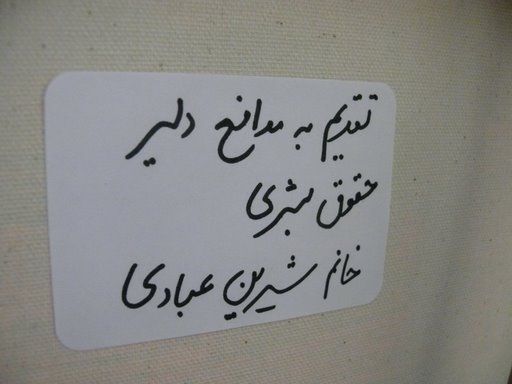 تقدیم به مدافع دلیر
حقوق بشری
خانم شیرین عبادی